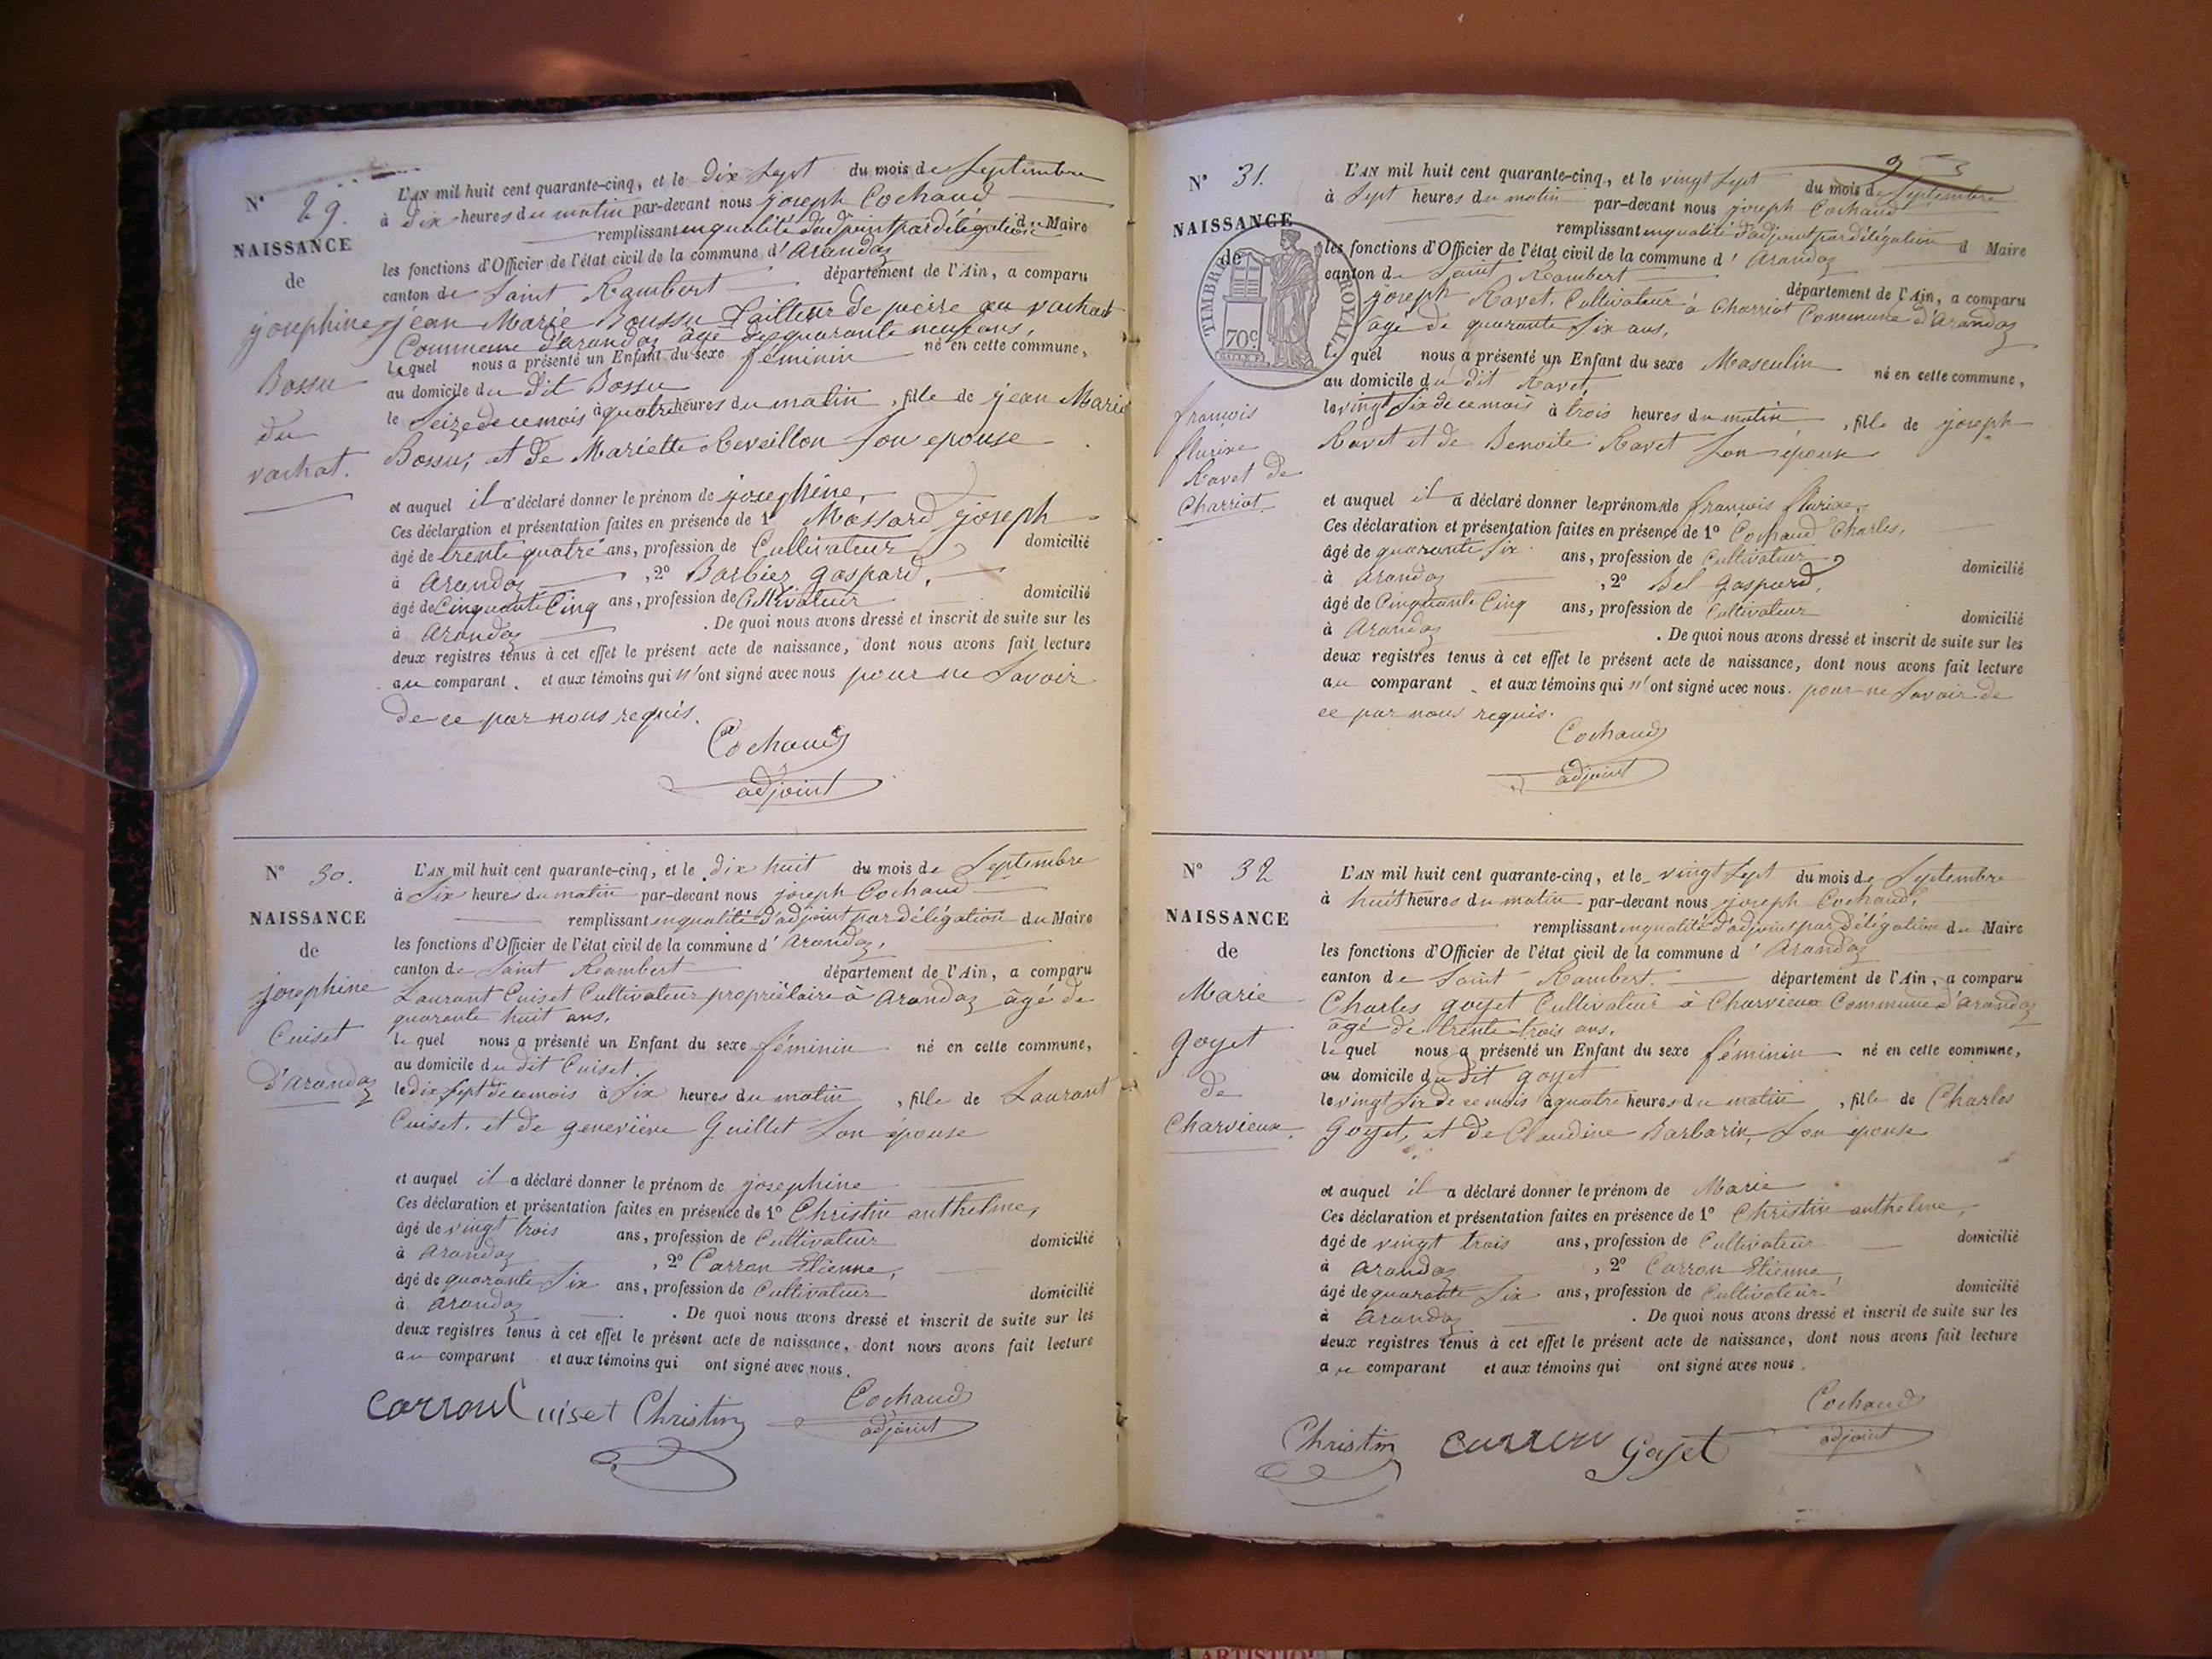 N° 29.
NAISSANCE
de
josephine
Bossu
du
vachat.
L'AN mil huit cent quarante-cinq, et le dix sept du mois de Septembre
à dix heures du matin par-devant nous joseph Cochaud
remplissant en qualité d'adjoint par délégation du Maire
les fonctions d'Officier de l'état civil de la commune d'Arandaz
canton de Saint Rambert département de l'Ain, a comparu
jean Marie Boussu Tailleur de pierre au vachat
Commune d'Arandaz âgé de quarante neuf ans,
lequel nous a présenté un Enfant du sexe féminin né en cette commune,
au domicile du dit Bossu
le Seize de ce mois à quatre heures du matin, fille de jean Marie
Bossu, et de Mariette Reveillon Son epouse
et auquel il a déclaré donner le prénom de josephine,
Ces déclaration et présentation faites en présence de 1° Massard joseph
âgé de trente quatre ans, profession de Cultivateur domicilié
à Arandaz, 2° Barbier gaspard,
âgé de Cinquante Cinq ans, profession de Cultivateur domicilié
à Arandaz. De quoi nous avons dressé et inscrit de suite sur les
deux registres tenus à cet effet le présent acte de naissance, dont nous avons fait lecture
au comparant. et aux témoins qui n'ont signé avec nous pour ne Savoir
de ce par nous requis.
Cochaud
adjoint
N° 30.
NAISSANCE
de
josephine
Cuiset
d'Arandaz
L'AN mil huit cent quarante-cinq, et le dix huit du mois de Septembre
à Six heures du matin par-devant nous joseph Cochaud
remplissant en qualité d'adjoint par délégation du Maire
les fonctions d'Officier de l'état civil de la commune d'Arandaz,
canton de Saint Rambert département de l'Ain, a comparu
Laurant Cuiset Cultivateur propriétaire à Arandaz âgé de
quarante huit ans,
lequel nous a présenté un Enfant du sexe féminin né en cette commune,
au domicile du dit Cuiset.
le dix Sept de ce mois à Six heures du matin, fille de Laurant
Cuiset, et de geneviève Guillet Son epouse
et auquel il a déclaré donner le prénom de josephine
Ces déclaration et présentation faites en présence de 1° Christin anthelme,
âgé de vingt trois ans, profession de Cultivateur domicilié
à Arandaz, 2° Carron Etienne,
âgé de quarante Six ans, profession de Cultivateur domicilié
à Arandaz. De quoi nous avons dressé et inscrit de suite sur les
deux registres tenus à cet effet le présent acte de naissance, dont nous avons fait lecture
au comparant et aux témoins qui ont signé avec nous.
Carron Cuiset Christin Cochaud
adjoint
N° 31.
NAISSANCE
de
TIMBRE ROYAL
70c
françois
Ravet de
Charriot.
L'AN mil huit cent quarante-cinq, et le vingt Sept du mois de Septembre
à Sept heures du matin par-devant nous joseph Cochaud
remplissant en qualité d'adjoint par délégation d Maire
les fonctions d'Officier de l'état civil de la commune d'Arandaz
canton de Saint Rambert département de l'Ain, a comparu
joseph Ravet, Cultivateur à Charriot Commune d'Arandaz
âgé de quarante Six ans,
lequel nous a présenté un Enfant du sexe Masculin né en cette commune,
au domicile du dit Ravet
le vingt Six de ce mois à trois heures du matin, fils de joseph
Ravet et de Benoite Ravet Son epouse
et auquel il a déclaré donner les prénoms de françois
Ces déclaration et présentation faites en présence de 1° Cochaud Charles,
âgé de quarante Six ans, profession de Cultivateur domicilié
à Arandaz, 2° Bel gaspard,
âgé de Cinquante Cinq ans, profession de Cultivateur domicilié
à Arandaz. De quoi nous avons dressé et inscrit de suite sur les
deux registres tenus à cet effet le présent acte de naissance, dont nous avons fait lecture
au comparant. et aux témoins qui n'ont signé avec nous. pour ne Savoir de
ce par nous requis.
Cochaud
adjoint
N° 32
NAISSANCE
de
Marie
goyet
de
Charvieux.
L'AN mil huit cent quarante-cinq, et le vingt Sept du mois de Septembre
à huit heures du matin par-devant nous joseph Cochaud,
remplissant en qualité d'adjoint par délégation du Maire
les fonctions d'Officier de l'état civil de la commune d'Arandaz
canton de Saint Rambert. département de l'Ain, a comparu
Charles goyet Cultivateur à Charvieux Commune d'Arandaz
âgé de trente trois ans.
lequel nous a présenté un Enfant du sexe féminin né en cette commune,
au domicile du dit goyet
le vingt Six de ce mois à quatre heures du matin, fille de Charles
Goyet, et de Claudine Barbarin, Son epouse
et auquel il a déclaré donner le prénom de Marie
Ces déclaration et présentation faites en présence de 1° Christin anthelme,
âgé de vingt trois ans, profession de Cultivateur domicilié
à Arandaz, 2° Carron Etienne,
âgé de quarante Six ans, profession de Cultivateur domicilié
à Arandaz. De quoi nous avons dressé et inscrit de suite sur les
deux registres tenus à cet effet le présent acte de naissance, dont nous avons fait lecture
au comparant et aux témoins qui ont signé avec nous.
Cochaud
Christin Carron Goyet adjoint